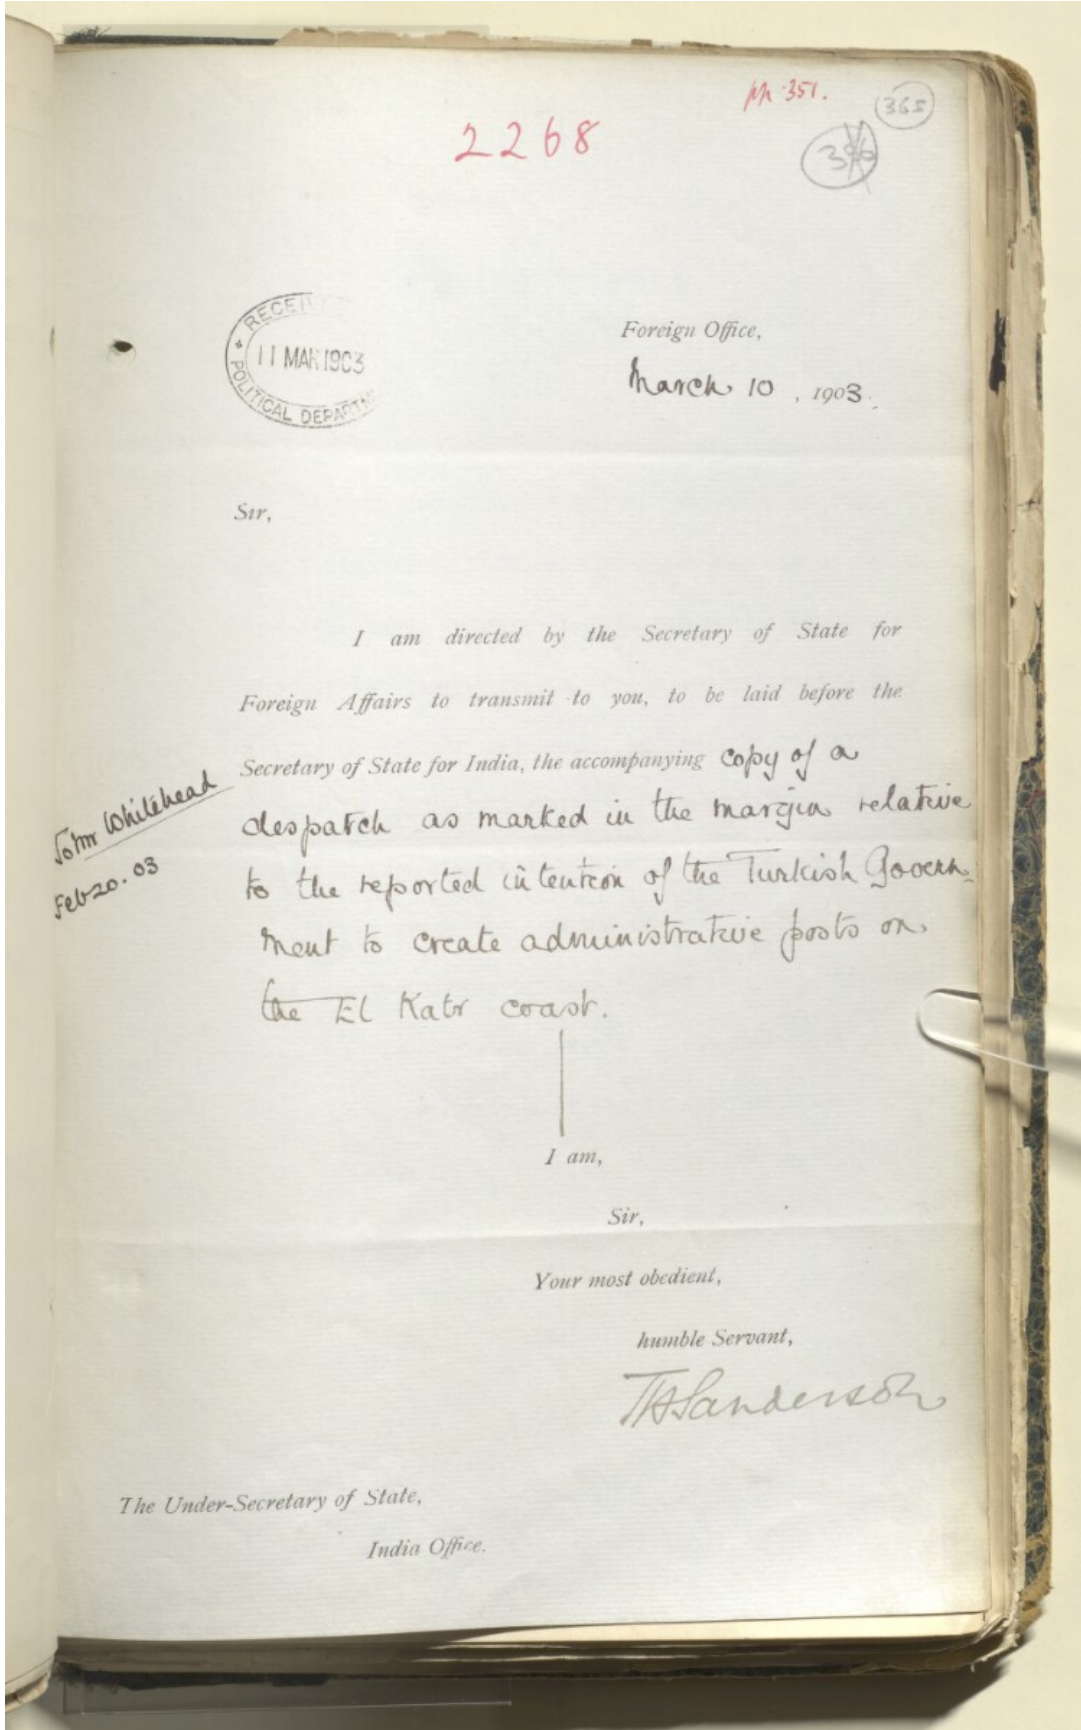 351.
365
2268
RECEIVED
11 MAR 1903
POLITICAL DEPARTMENT
Foreign Office,
March 10, 1903.
Sir,
I am directed by the Secretary of State for
Foreign Affairs to transmit to you, to be laid before the
Secretary of State for India, the accompanying copy of a
despatch as marked in the margin relative
to the reported intention of the Turkish Govern-
ment to create administrative posts on
the El Katr coast.
John Whitehead
Feb 20. 03
I am,
Sir,
Your most obedient,
humble Servant,
THSanderson
The Under-Secretary of State,
India Office.